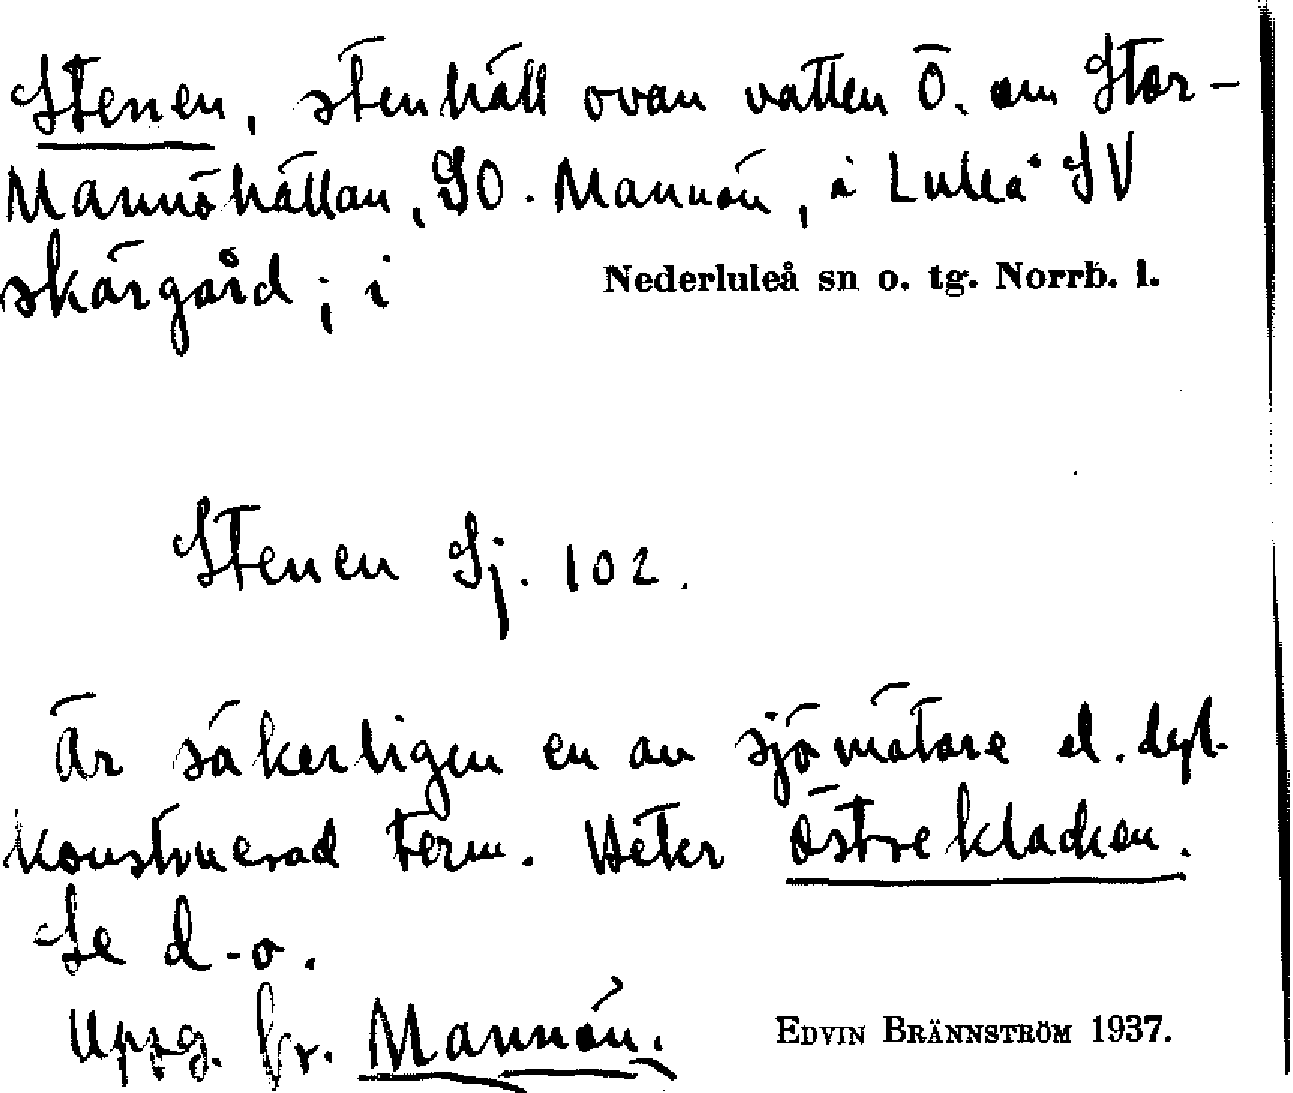 Stenen, stenhäll ovan vatten Ö. om Stor-
Mannöhällan, SO. Mannön, i Luleå SV
skärgård; i Nederluleå sn o. tg. Norrb. l.
Stenen Sj. 102.
Är säkerligen en av sjömätare el. dyl.
konstruerad term. Heter östreklacken.
Se d-o.
Uppg. fr. Mannön.
EDVIN BRÄNNSTRÖM 1937.